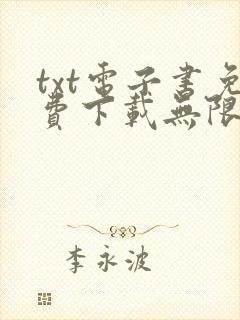 txt電子書免
費下載無限
李永波